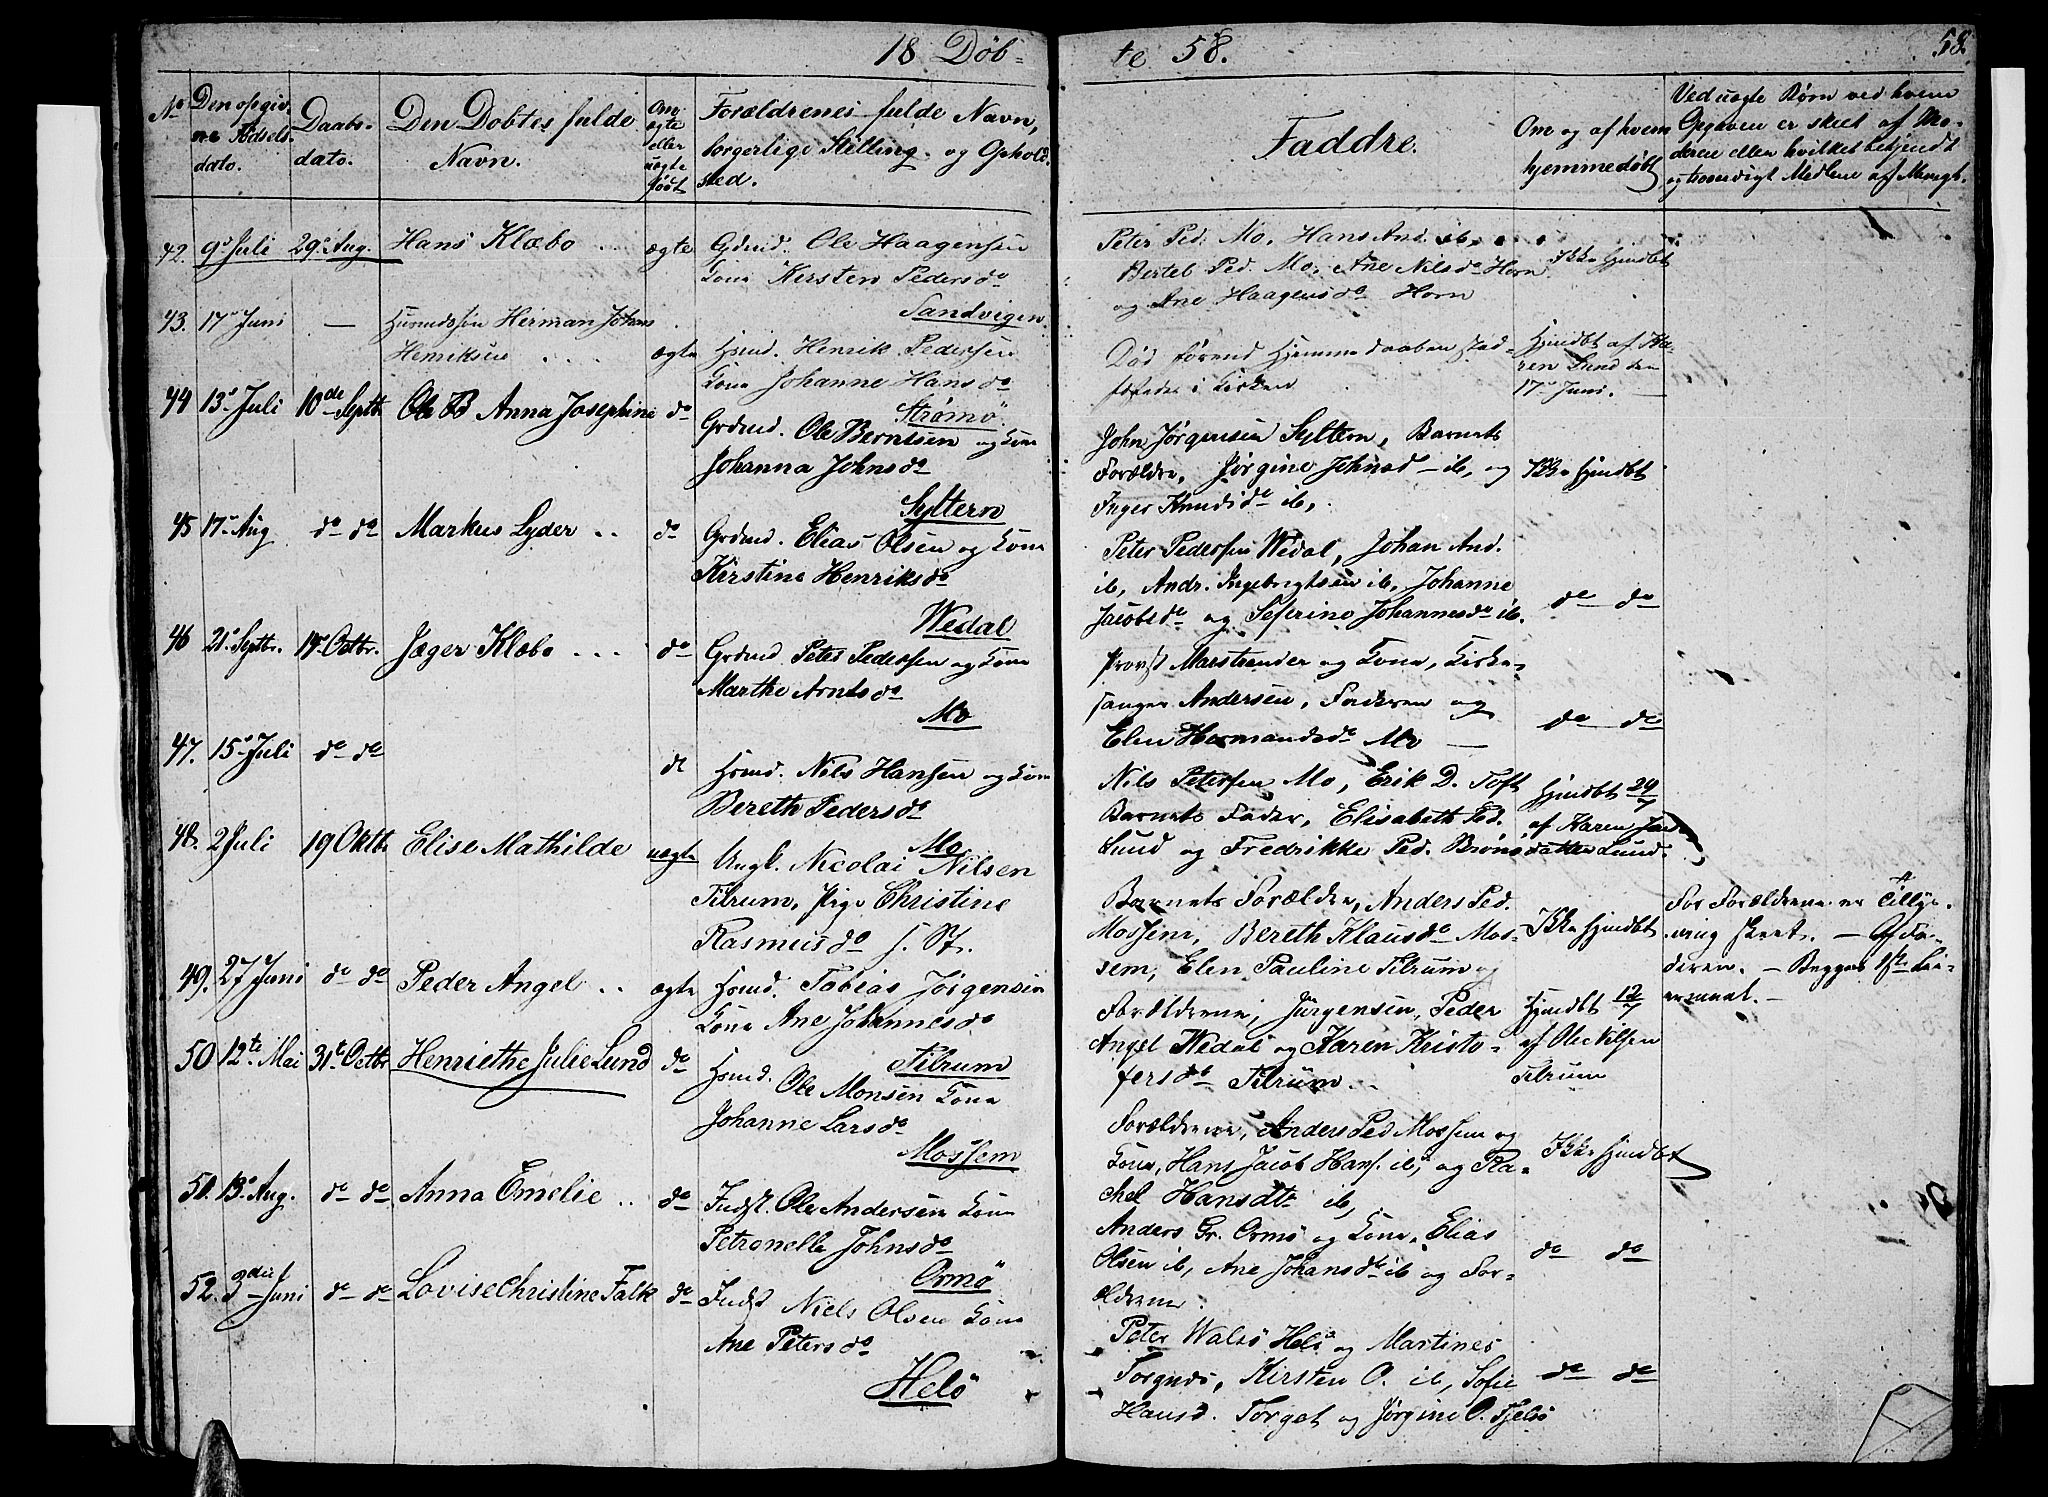 18 Döb-
te 58.
58.
No
Den opgiv.
ne Fødsels
dato.
Daabs-
dato.
Den Døbtes fulde
Navn.
Om
ægte
eller
uægte
født
Forældrenes fulde Navn,
borgerlige Stilling og Ophold
sted.
Faddre.
Om og af hvem
hjemmedøbt
Ved uægte Børn ved hvem
Opgaven er skeet af Mo-
deren eller hvilket bekjendt
og troværdigt Medlem af Menigh.
42. 9de Juli 29de Aug. Hans Klæbo ægte
Gdmd. Ole Haagensen
Kone Kersten Pedersdr
Sandvigen
Peter Ped. Mo, Hans And. ib,
Bertel Ped. Mo, Ane Nilsdr Horn
og Ane Haagensdr Horn
Ikke hjmdbt
43. 17de Juni — Husmdssøn Herman Johans
Henriksen ægte
Hsmd. Henrik Pedersen
Kone Johanne Hansdr
Strømö
Død förend Hjemmedaaben stad-
fæstedes i Kirken
Hjmdbt af Ka-
ren Lund den
17de Juni.
44 13de Juli 10de Septb. Ole B Anna Josephine do
Grdmd. Ole Berntsen og Kone
Johanna Johnsdr
Syltern
John Jørgensen Syltern, Barnets
Forældre, Jørgine Johnsd ib, og
Inger Knudsdr ib,
Ikke hjmdbt
45 17de Aug do do Markus Lyder .. do
Grdmd. Elias Olsen og Kone
Kirstine Henriksdr
Wedal
Peter Pedersen Wedal, Johan And.
ib, Andr. Ingebrigtsen ib, Johanne
Jacobsdr og Seferine Johannesdr ib.
do do
46 21de Septbr. 19de Octbr. Jæger Klæbo ... do
Grdmd Peter Pedersen og Kone
Marthe Arntsdr
Mo
Provst Marstrander og Kone, Kirke-
sanger Andersen, Faderen og
Elen Hermandsdr Mo —
do do
47. 15de Juli do do
do
Hsmd. Nils Hansen og Kone
Bereth Pedersdr
Mo
Nils Petersen Mo, Erik D. Toft
Barnets Fader, Elisabeth Ped.
Lund og Fredrikke Ped. Brönö
Hjmdbt 29/7
af Karen
datter Lund.
48. 2 Juli 19 Oktbr Elise Mathilde uægte
Ungk. Nicolai Nilsen
Tilrum, Pige Christine
Rasmusdr s. St.
Barnets Forældre, Anders Ped.
Mossem, Bereth Klausdr Mos-
sem, Elen Pauline Tilrum og
Ikke hjmdbt
For Forældrene er Tilly-
sning skeet. — Af Fa-
deren. — Begges 1ste Lei-
ermaal. —
49. 27 Juni do do Peder Angel .. ægte
Hsmd. Tobias Jörgensen
Kone Ane Johannesdr
Tilrum
Forældrene, Jörgensen, Peder
Angel Wedal og Karen Kristo-
fersdr Tilrum.
Hjmdbt 12/7
af Ole Nilsen
Tilrum
50 12te Mai 31te Octbr Henriethe Julie Lund do
Hsmd. Ole Monsen Kone
Johanne Larsdr
Mossem
Forældrene, Anders Ped Mossem og
Kone, Hans Jacob Hans. ib, og Ra-
chel Hansdtr ib,
Ikke hjmdbt
51. 13de Aug. do do Anna Emelie .. do
Indst. Ole Andersen Kone
Petronelle Johnsdr
Ormö
Anders Gr. Ormö og Kone, Elias
Olsen ib, Ane Johansdtr ib og For-
ældrene.
do do
52. 3die Juni do do Lovise Christine Falk do
Indst Niels Olsen Kone
Ane Petersdr
Helö
Peter Walsö Helö og Martines
Torgnæs, Kirsten O. ib, Sofie
Hansd. Torget og Jörgine O. Tjelsö
do do